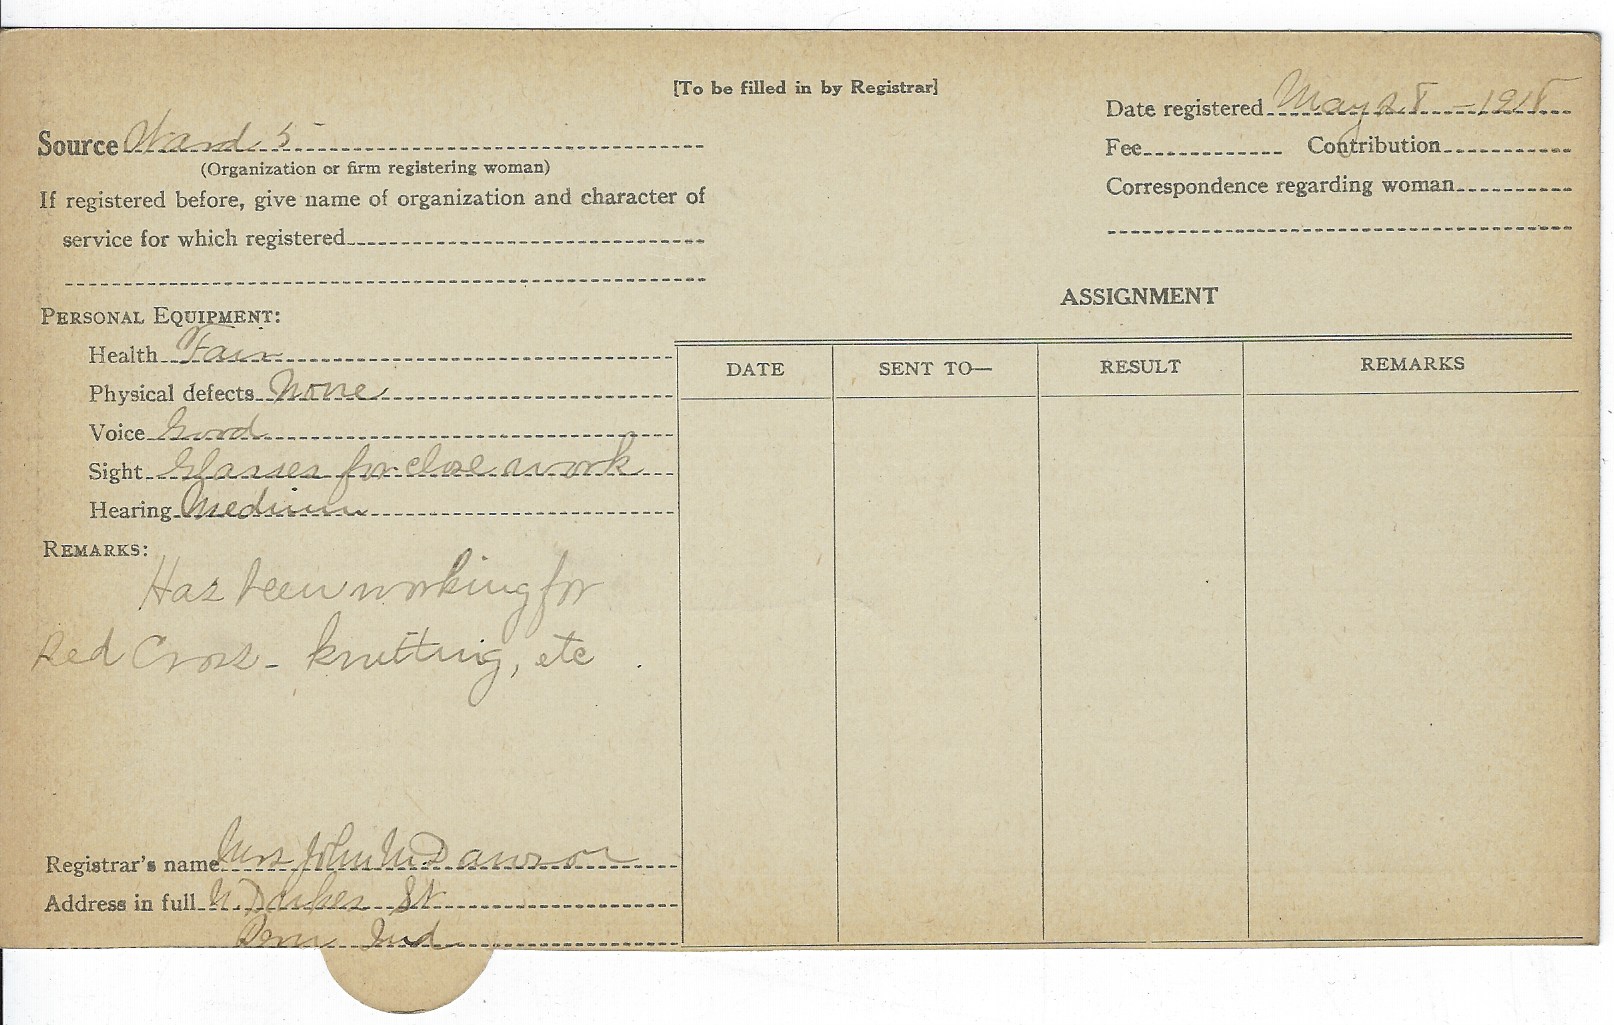 [To be filled in by Registrar]
Date registered May 28 - 1918
Source Ward 5
(Organization or firm registering woman)
Fee Contribution
If registered before, give name of organization and character of
service for which registered
Correspondence regarding woman
ASSIGNMENT
PERSONAL EQUIPMENT:
Health Fair
Physical defects None
Voice Good
Sight Glasses for close work
Hearing Medium
DATE SENT TO— RESULT REMARKS
REMARKS:
Has been working for
Red Cross - knitting, etc.
Registrar's name Mrs John Dawson
Address in full N. St
Peru Ind